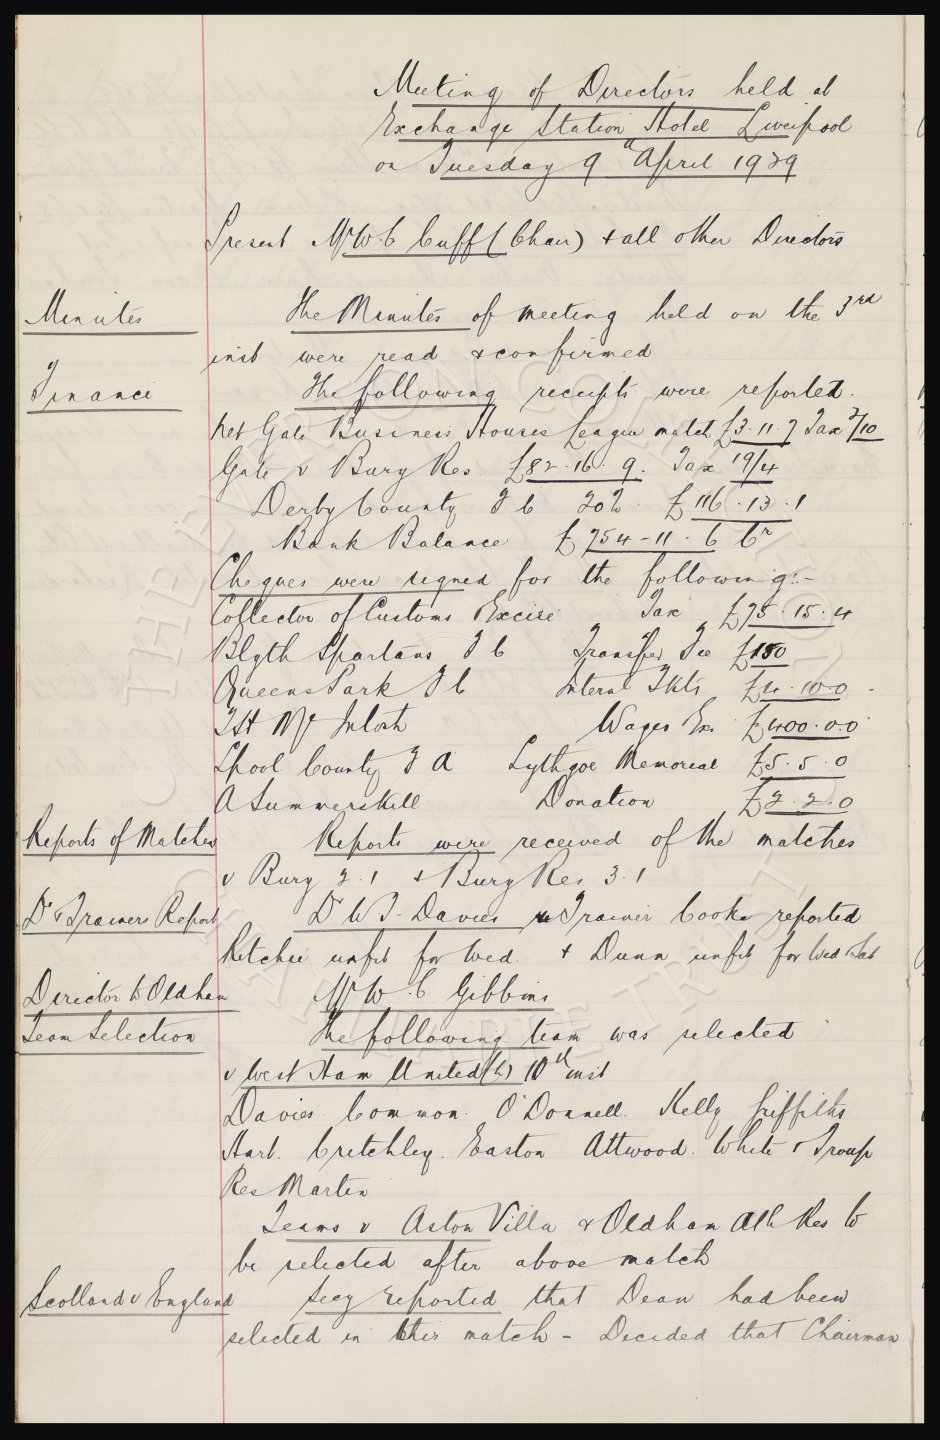 Meeting of Directors held at
Exchange Station Hotel Liverpool
on Tuesday 9th April 1929
Present Mr W. C. Cuff (Chair) & all other Directors
Minutes The Minutes of meeting held on the 3rd
inst were read & confirmed
Finance The following receipts were reported.
Net Gate Business Houses League match £3.11.7 Tax 2/10
Gate v Bury Res £82.16.9. Tax 19/4
Derby County F C 20% £116.13.1
Bank Balance £754-11.6 Cr
Cheques were signed for the following:-
Collector of Customs Excise Tax £75.15.4
Blyth Spartans F C Transfer Fee £150
Queens Park F C Intern Tkts £4.10.0
T H McIntosh Wages Exs £400.0.0
L'pool County F A Lythgoe Memorial £5.5.0
A Summerskill Donation £2.2.0
Reports of Matches Reports were received of the matches
v Bury 2.1 & Bury Res 3.1
Dr & Trainers Report Dr W T. Davies & Trainer Cooke reported
Ritchie unfit for Wed. & Dunn unfit for Wed & Sat
Director to Oldham Mr W. C. Gibbins
Team Selection The following team was selected
v West Ham United (h) 10th inst
Davies. Common. O'Donnell. Kelly Griffiths
Hart. Critchley. Easton Attwood. White & Troup
Res Martin
Teams v Aston Villa & Oldham Ath Res to
be selected after above match
Scotland v England Secy reported that Dean had been
selected in this match - Decided that Chairman
THE EVERTON COLLECTION
CHARITABLE TRUST